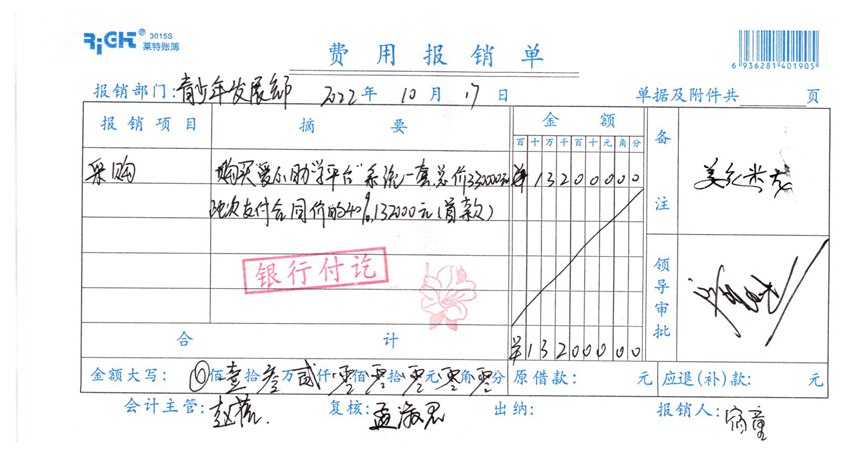 RiCH® 3015S
莱特账簿
费用报销单
6 936281 401905
报销部门:青少年发展部 2022年10月17日 单据及附件共 页
报销项目 摘要 金额 备注
百十万千百十元角分
采购 购买"爱心助学平台"系统一套总价330000元 ¥13200000
此次支付合同价的40%,132000元(首款)
银行付讫
领导审批
合计 ¥13200000
金额大写: 佰壹拾叁万贰仟零佰零拾零元零角零分 原借款: 元 应退(补)款: 元
会计主管: 复核:孟淑思 出纳: 报销人: